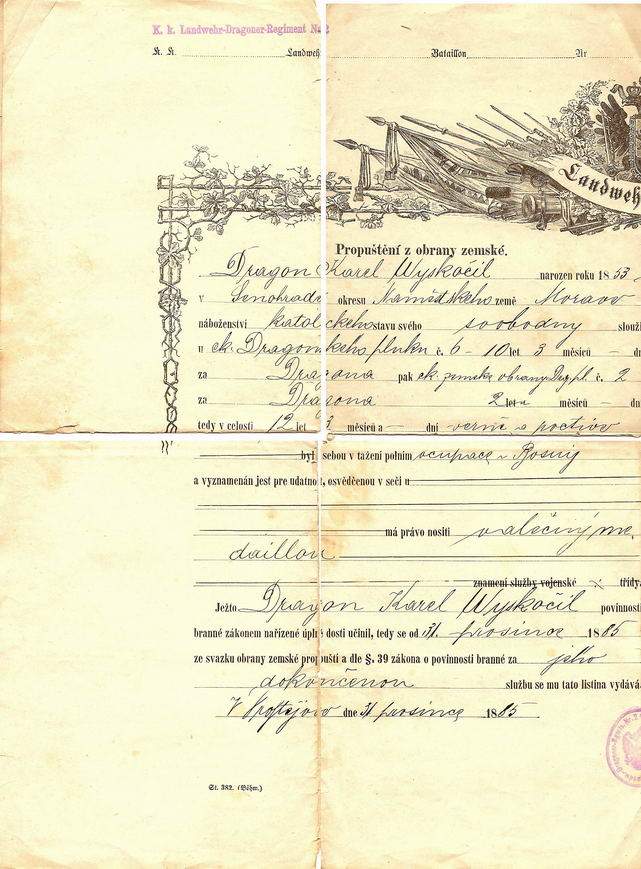 K. k. Landwehr-Dragoner-Regiment No 2
K. K. Landweh Bataillon Nr
Landweh
Propuštění z obrany zemské.
Dragon Karel Wyskočil narozen roku 1853
v Senohrade okresu Naměštského země Morava
náboženství katolického stavu svého svobodny slouži
u ck. Dragonského pluku č. 6 - 10 let 3 měsíců – dn
za Dragona pak ck. zemské obrany Drg. pl. č. 2
za Dragona 2 leta měsíců – dn
tedy v celosti 12 let 3 měsíců a – dní verně a poctivo
byl sebou v tažení polním ocupace v Bosny
a vyznamenán jest pro udatnost, osvědčenou v seči u
má právo nositi valečný me
daillon
znamení služby vojenské třídy
Ježto Dragon Karel Wyskočil povinnosti
branné zákonem nařízené úplně dosti učinil, tedy se od 31. prosince 1885
ze svazku obrany zemské propuští a dle §. 39 zákona o povinnosti branné za jeho
dokončenou službu se mu tato listina vydává
V dne 31 prosince 1885
St. 382. (Böhm.)